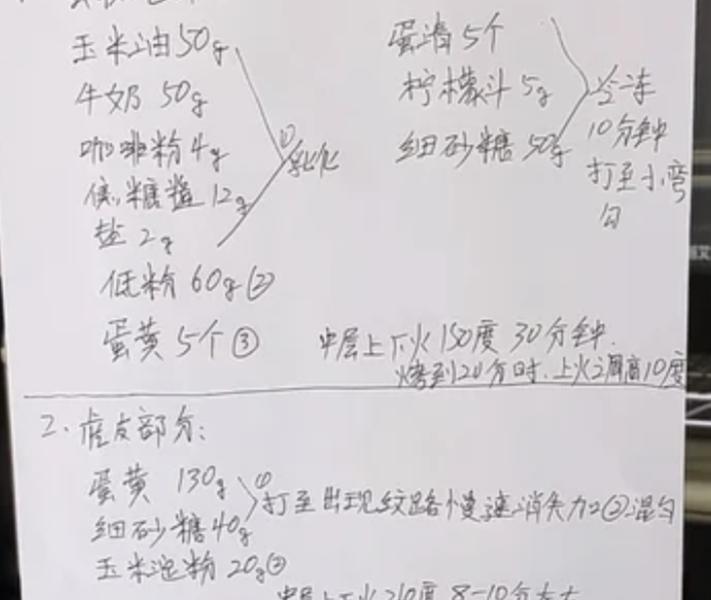 玉米油 50g
牛奶 50g
咖啡粉 4g
焦糖酱 12g
盐 2g
①乳化
低粉 60g ②
蛋黄 5个 ③
蛋清 5个
柠檬汁 5g
细砂糖 50g
冷冻
10分钟
打至小弯
勾
中层上下火 150度 30分钟.
烤到20分时.上火调高10度
2.虎皮部分:
蛋黄 130g
细砂糖 40g
①打至出现纹路慢速消失加②混匀
玉米淀粉 20g②
中层上下火 210度 8-10分